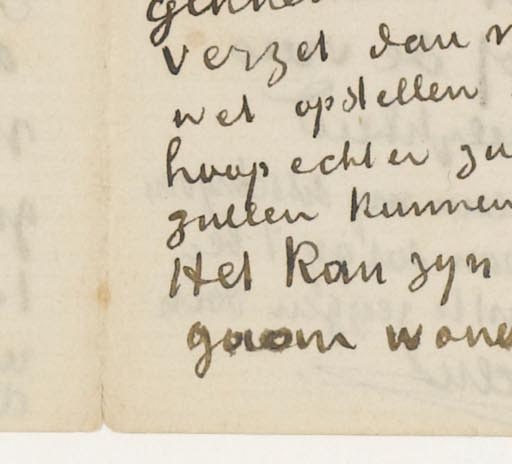 verzet dan
wet opstellen
hoop echter zu
zullen kunnen
Het kan zyn
gaan wone